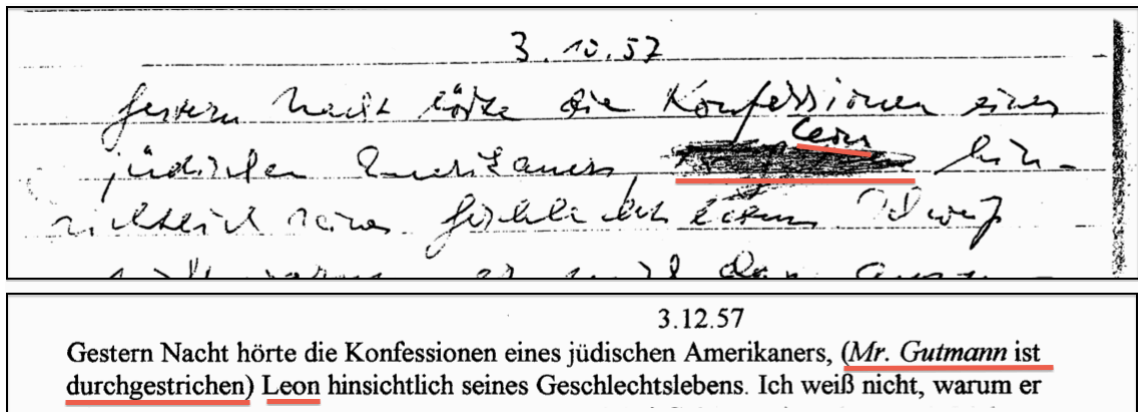 3.10.57
Gestern Nacht hörte die Konfessionen eines
Leon
jüdischen Amerikaners, hin-
sichtlich seines Geschlechtslebens. Ich weiß
nicht warum er
3.12.57
Gestern Nacht hörte die Konfessionen eines jüdischen Amerikaners, (Mr. Gutmann ist
durchgestrichen) Leon hinsichtlich seines Geschlechtslebens. Ich weiß nicht, warum er